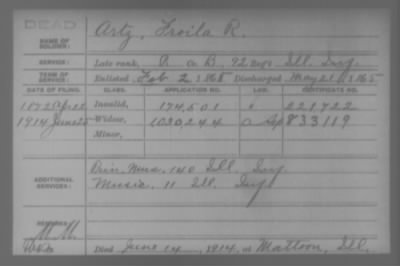 DEAD
NAME OF SOLDIER: Artz, Froila R.
SERVICE: Late rank, R Co. B, 92 Regt. Ill. Inf.
TERM OF SERVICE: Enlisted Feb 2 1865 Discharged May 21 1865
DATE OF FILING. CLASS. APPLICATION NO. LAW. CERTIFICATE NO.
1872 Invalid, 174,501 221922
1914 June 25 Widow, 1030,244 833119
Minor,
ADDITIONAL SERVICES: Prin. Mus. 140 Ill. Inf.
Music. 11 Ill. Inf.
REMARKS:
Died June 14, 1914, at Mattoon, Ill.